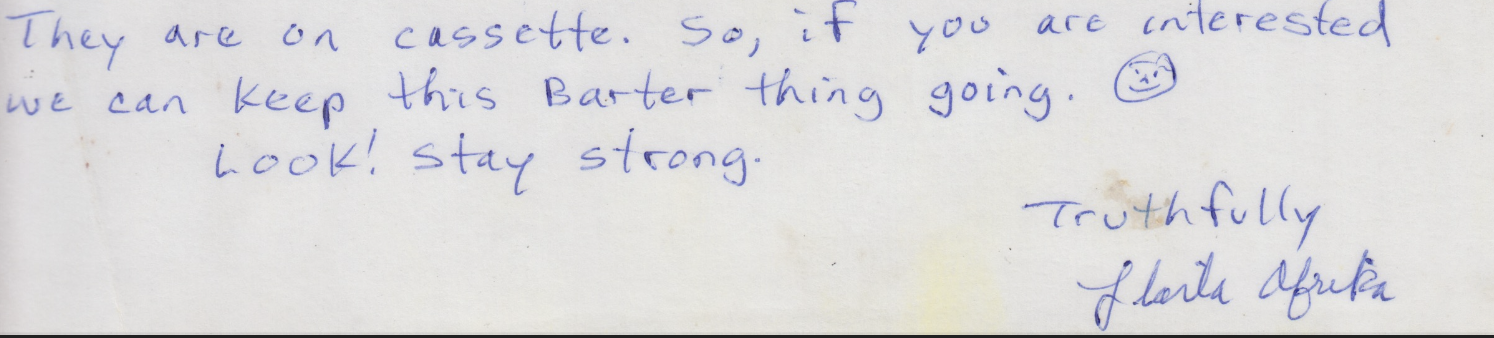 They are on cassette. So, if you are interested
we can keep this Barter thing going.
Look! Stay strong.
Truthfully
Llaila Afrika